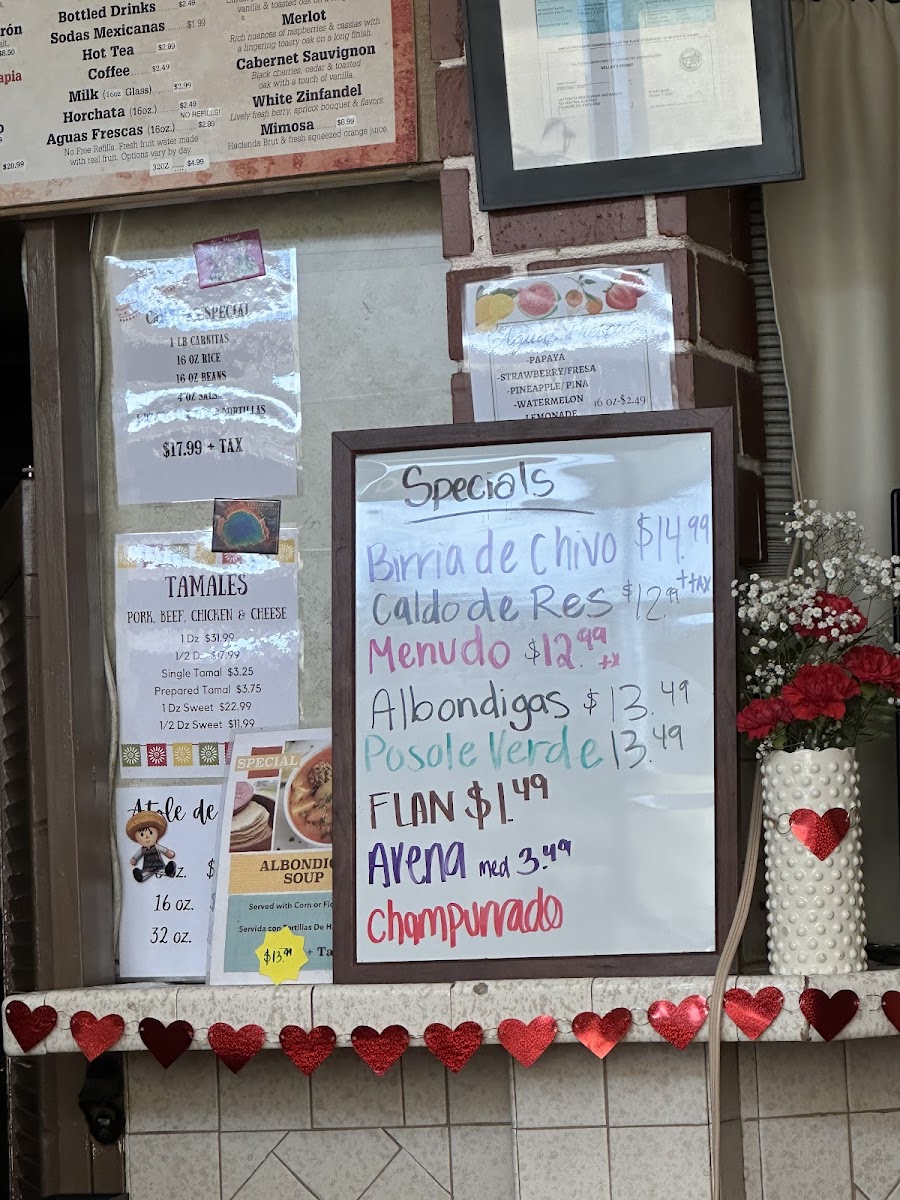 Bottled Drinks $2.49
Sodas Mexicanas $1.99
Hot Tea $2.99
Coffee $2.49
Milk (16oz Glass) $2.99
Horchata (16oz.) $2.49
NO REFILLS!
Aguas Frescas (16oz.) $2.99
No Free Refills. Fresh fruit water made
with real fruit. Options vary by day.
32OZ $4.99
$20.99
Merlot
Rich nuances of raspberries & cassias with
a lingering toasty oak on a long finish.
Cabernet Sauvignon
Black cherries, cedar & toasted
oak with a touch of vanilla.
White Zinfandel
Lively fresh berry, apricot bouquet & flavors.
Mimosa $6.99
Hacienda Brut & fresh squeezed orange juice.
SPECIAL
1 LB CARNITAS
16 OZ RICE
16 OZ BEANS
4 OZ
$17.99 + TAX
-PAPAYA
-STRAWBERRY/FRESA
-PINEAPPLE/PINA
-WATERMELON 16 OZ-$2.49
LEMONADE
TAMALES
PORK, BEEF, CHICKEN & CHEESE
1 Dz $31.99
1/2 Dz $17.99
Single Tamal $3.25
Prepared Tamal $3.75
1 Dz Sweet $22.99
1/2 Dz Sweet $11.99
Atole de
oz. $
16 oz.
32 oz.
SPECIAL
SOUP
Served with Corn or
Servida con Tortillas De
$13.49 +
Specials
Birria de Chivo $14.99
Caldo de Res $12.99 + tax
Menudo $12.99 +x
Albondigas $13.49
Posole Verde 13.49
FLAN $1.49
Avena med 3.49
Champurrado